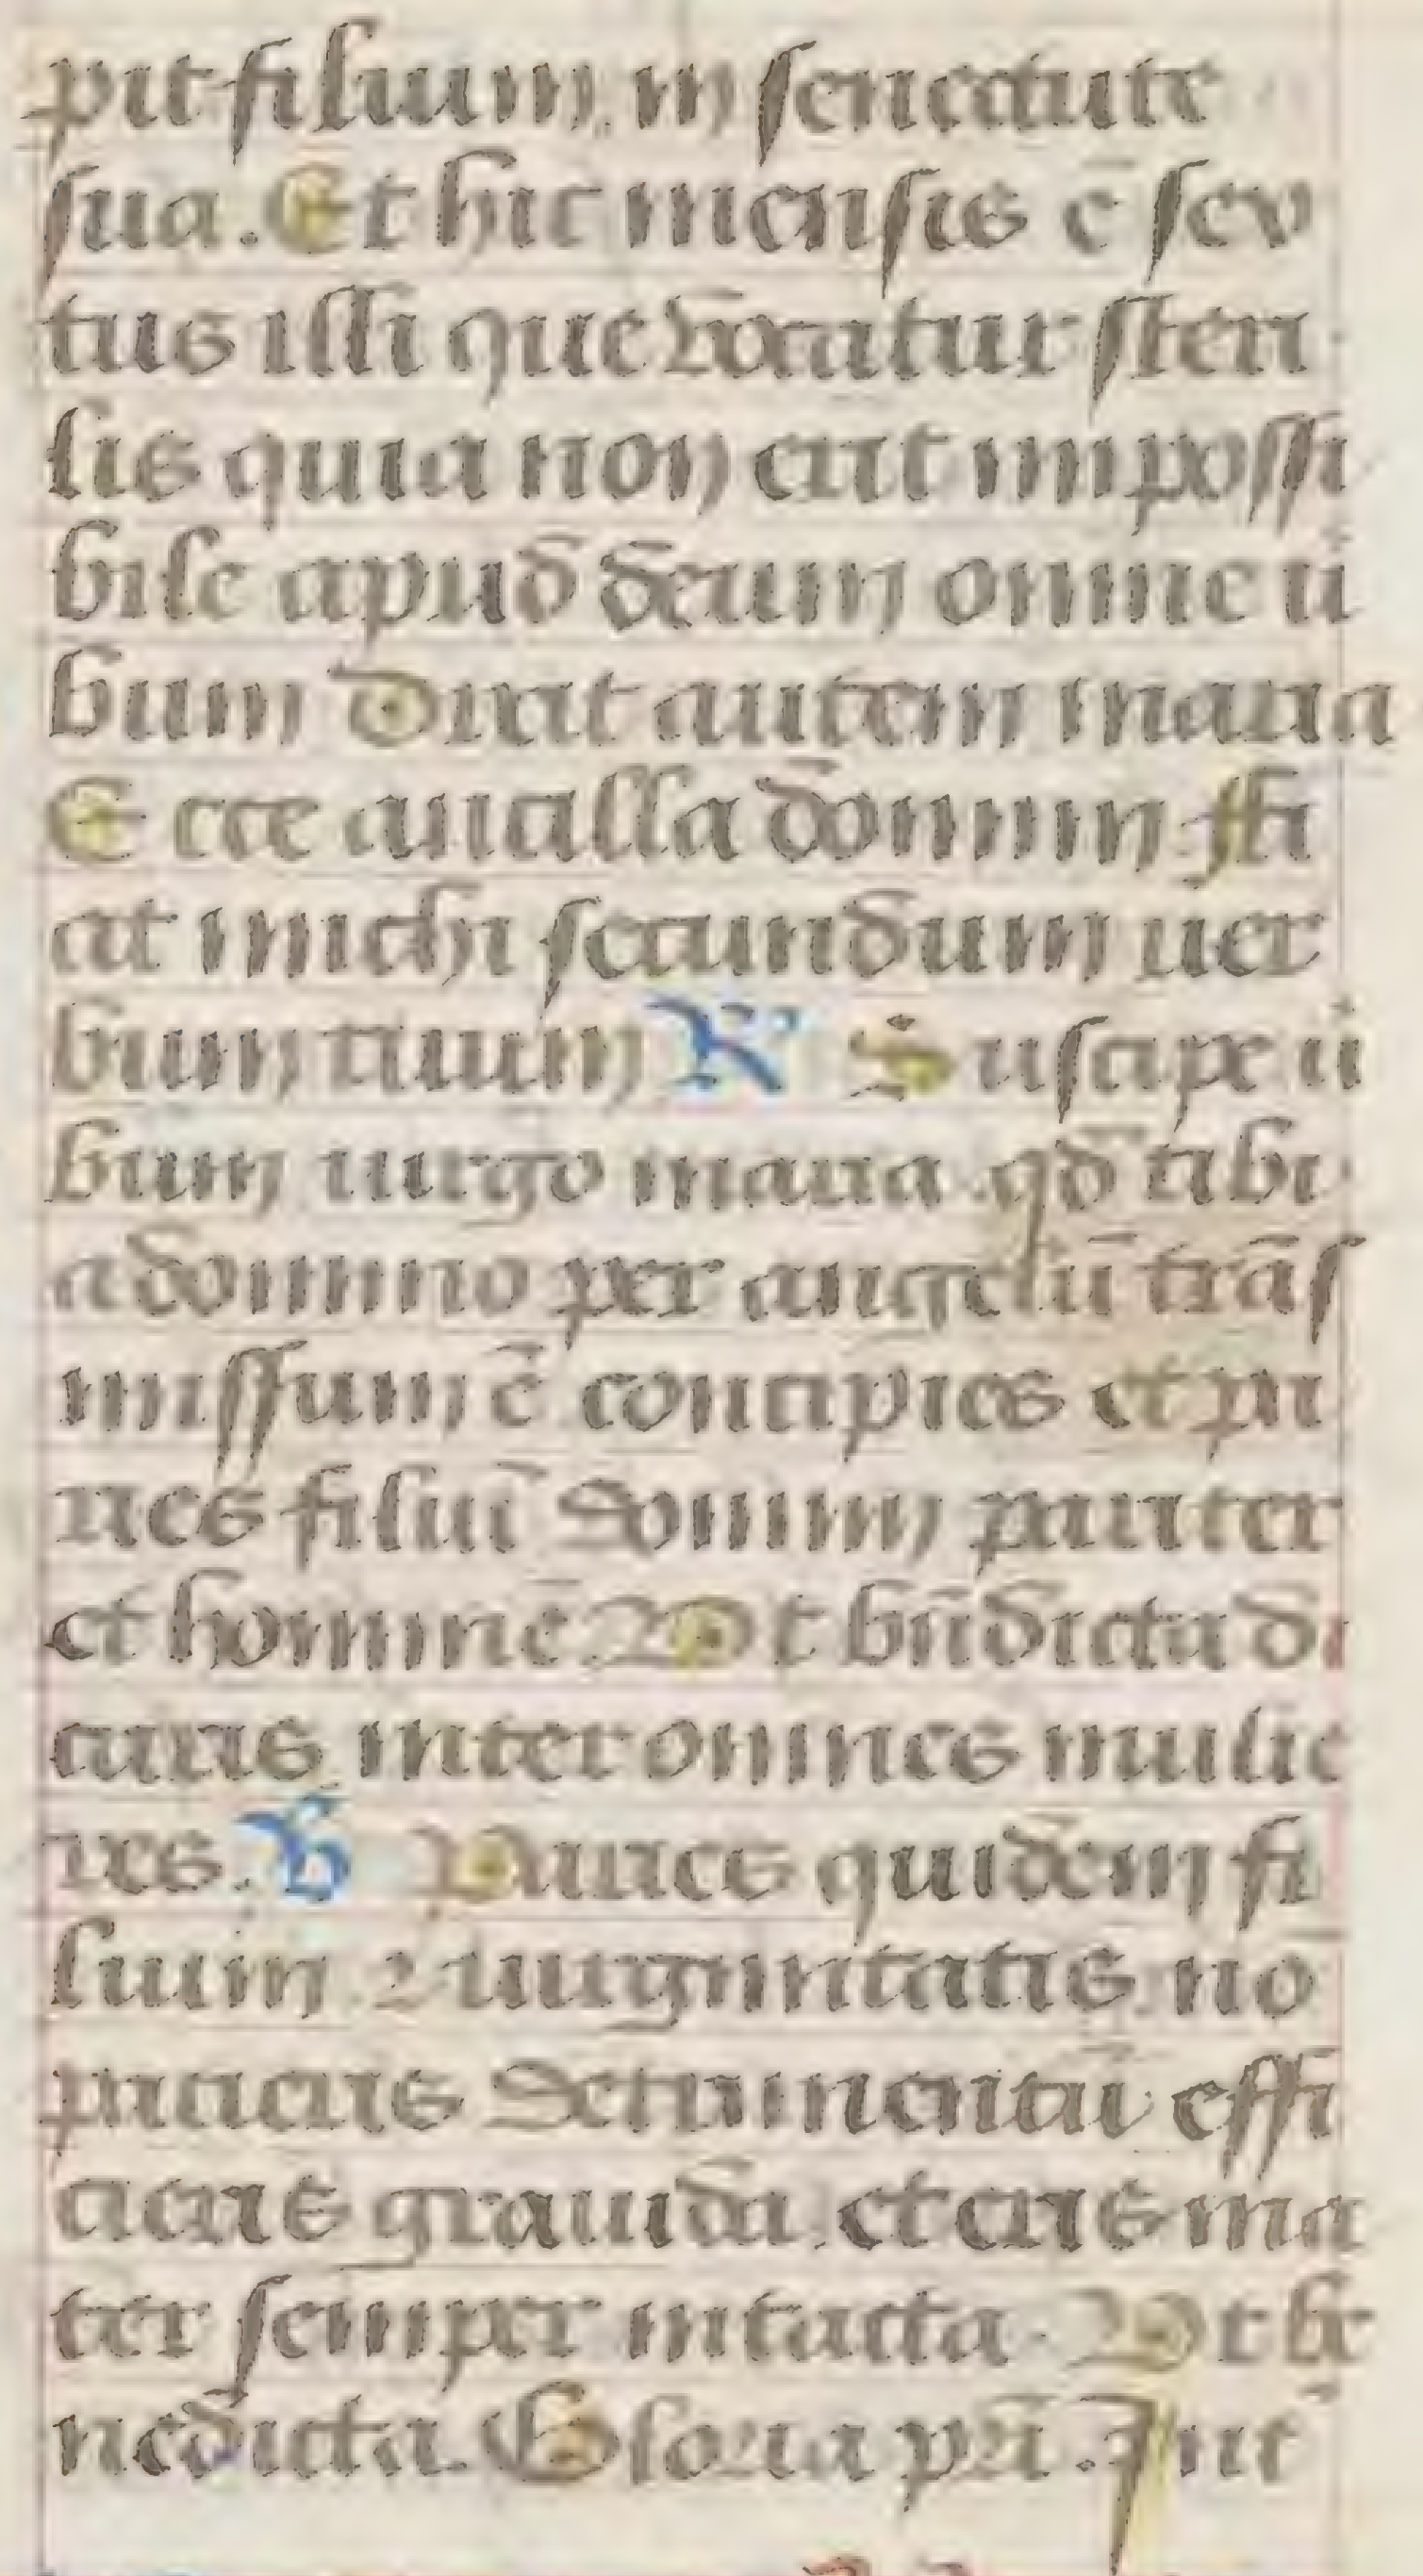 pit filium in senectute
sua. Et hic mensis ē sex
tus illi que vocatur steri
lis quia non erit impossi
bile apud deum omne u̓
bum Dixit autem maria
Ecce ancilla domini ffi
at michi secundum uer
bum tuum R̸ Suscipe u̓
bum uirgo maria qd̄ tibi
a domino per angelū trās
missum ē concipies et pa
ries filiū domini pariter
et hominē Vt bn̄dicta di
caris inter omnes mulie
res. V̸ Paries quidem fi
lium ⁊ uirginitatis nō
pacieris detrimentū effi
cieris grauida et eris ma
ter semper intacta. Vt be
nedicta. Gloria pr̄i. Int̓